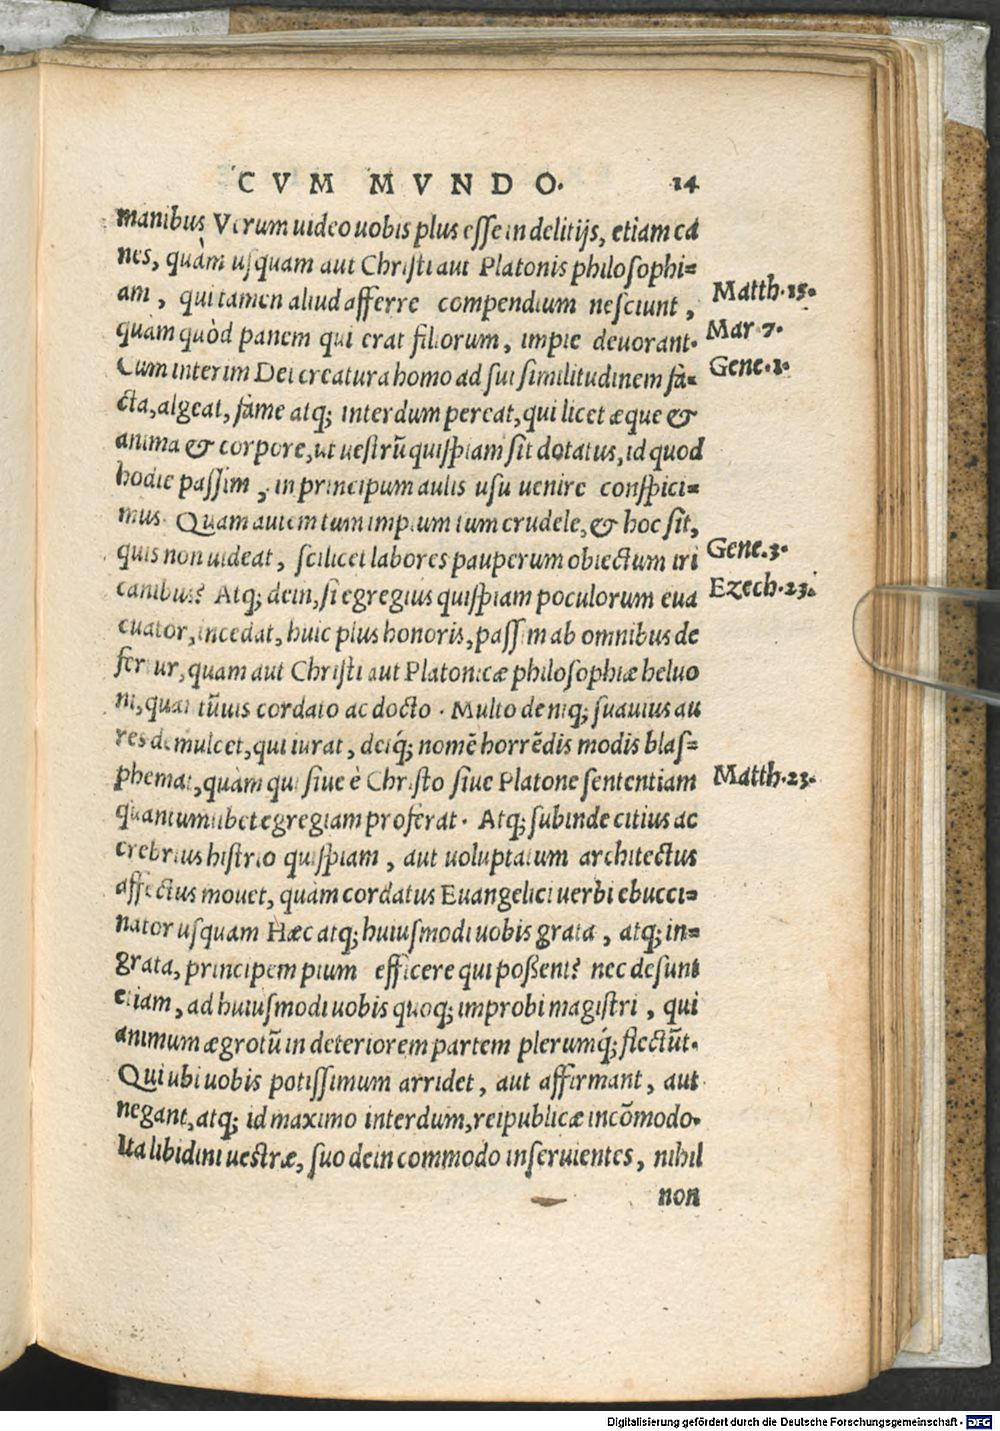 CVM MVNDO. 14
manibus Verum uideo uobis plus esse in delitijs, etiam ca
nes, quàm usquam aut Christi aut Platonis philosophi=
am, qui tamen aliud afferre compendium nesciunt,
Matth.15.
quàm quòd panem qui erat filiorum, impie deuorant.
Mar 7.
Cum interim Dei creatura homo ad sui similitudinem fa=
Gene.1.
cta, algeat, fame atq; interdum pereat, qui licet æque &
anima & corpore, ut uestrũ quispiam sit dotatus, id quod
hodie passim, in principum aulis usu uenire conspici=
mus. Quam autem tum impium tum crudele, & hoc sit,
quis non uideat, scilicet labores pauperum obiectum iri
Gene.3.
canibus? Atq; dein, si egregius quispiam poculorum eua
Ezech.23.
cuator, incedat, huic plus honoris, passim ab omnibus de
fertur, quam aut Christi aut Platonicæ philosophiæ heluo
ni, quantũuis cordato ac docto. Multo deniq; suauius au
res demulcet, qui iurat, deiq́; nomẽ horrẽdis modis blas=
phemat, quàm qui siue è Christo siue Platone sententiam
Matth.23.
quantumlibet egregiam proferat. Atq; subinde citius ac
crebrius histrio quispiam, aut uoluptatum architectus
affectus mouet, quàm cordatus Euangelici uerbi ebucci=
nator usquam Hæc atq; huiusmodi uobis grata, atq; in=
grata, principem pium efficere qui poßent? nec desunt
etiam, ad huiusmodi uobis quoq; improbi magistri, qui
animum ægrotũ in deteriorem partem plerumq́; flectũt.
Qui ubi uobis potissimum arridet, aut affirmant, aut
negant, atq; id maximo interdum, reipublicæ incõmodo.
Ita libidini uestræ, suo dein commodo inseruientes, nihil
non
Digitalisierung gefördert durch die Deutsche Forschungsgemeinschaft - DFG